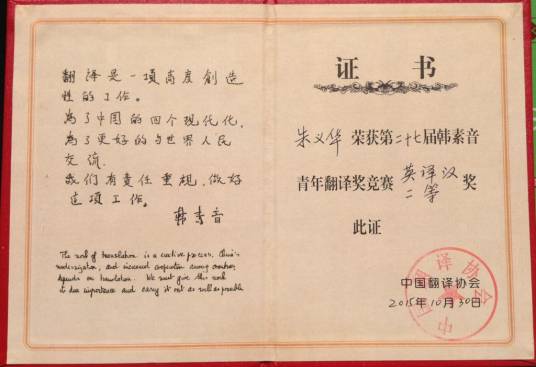 翻译是一项高度創造
性的工作。
為了中国的四个现代化，
為了更好的与世界人民
交流，
我们有责任重视、做好
这項工作。
韩素音
The work of translation is a creative process. China's
modernization, and increased cooperation among countries
depends on translation. We must give this work
its due importance and carry it out as well as possible
证书
朱义华 荣获第二十七届韩素音
青年翻译奖竞赛 英译汉 二等 奖
此证
中国翻译协会
2015年10月30日
中国翻译协会